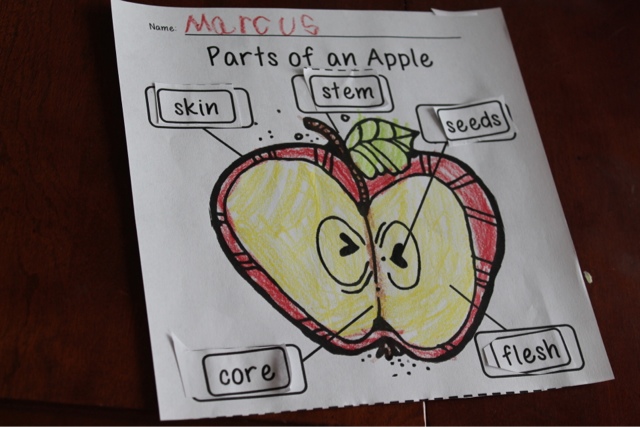 Name: Marcus
Parts of an Apple
skin
stem
seeds
core
flesh